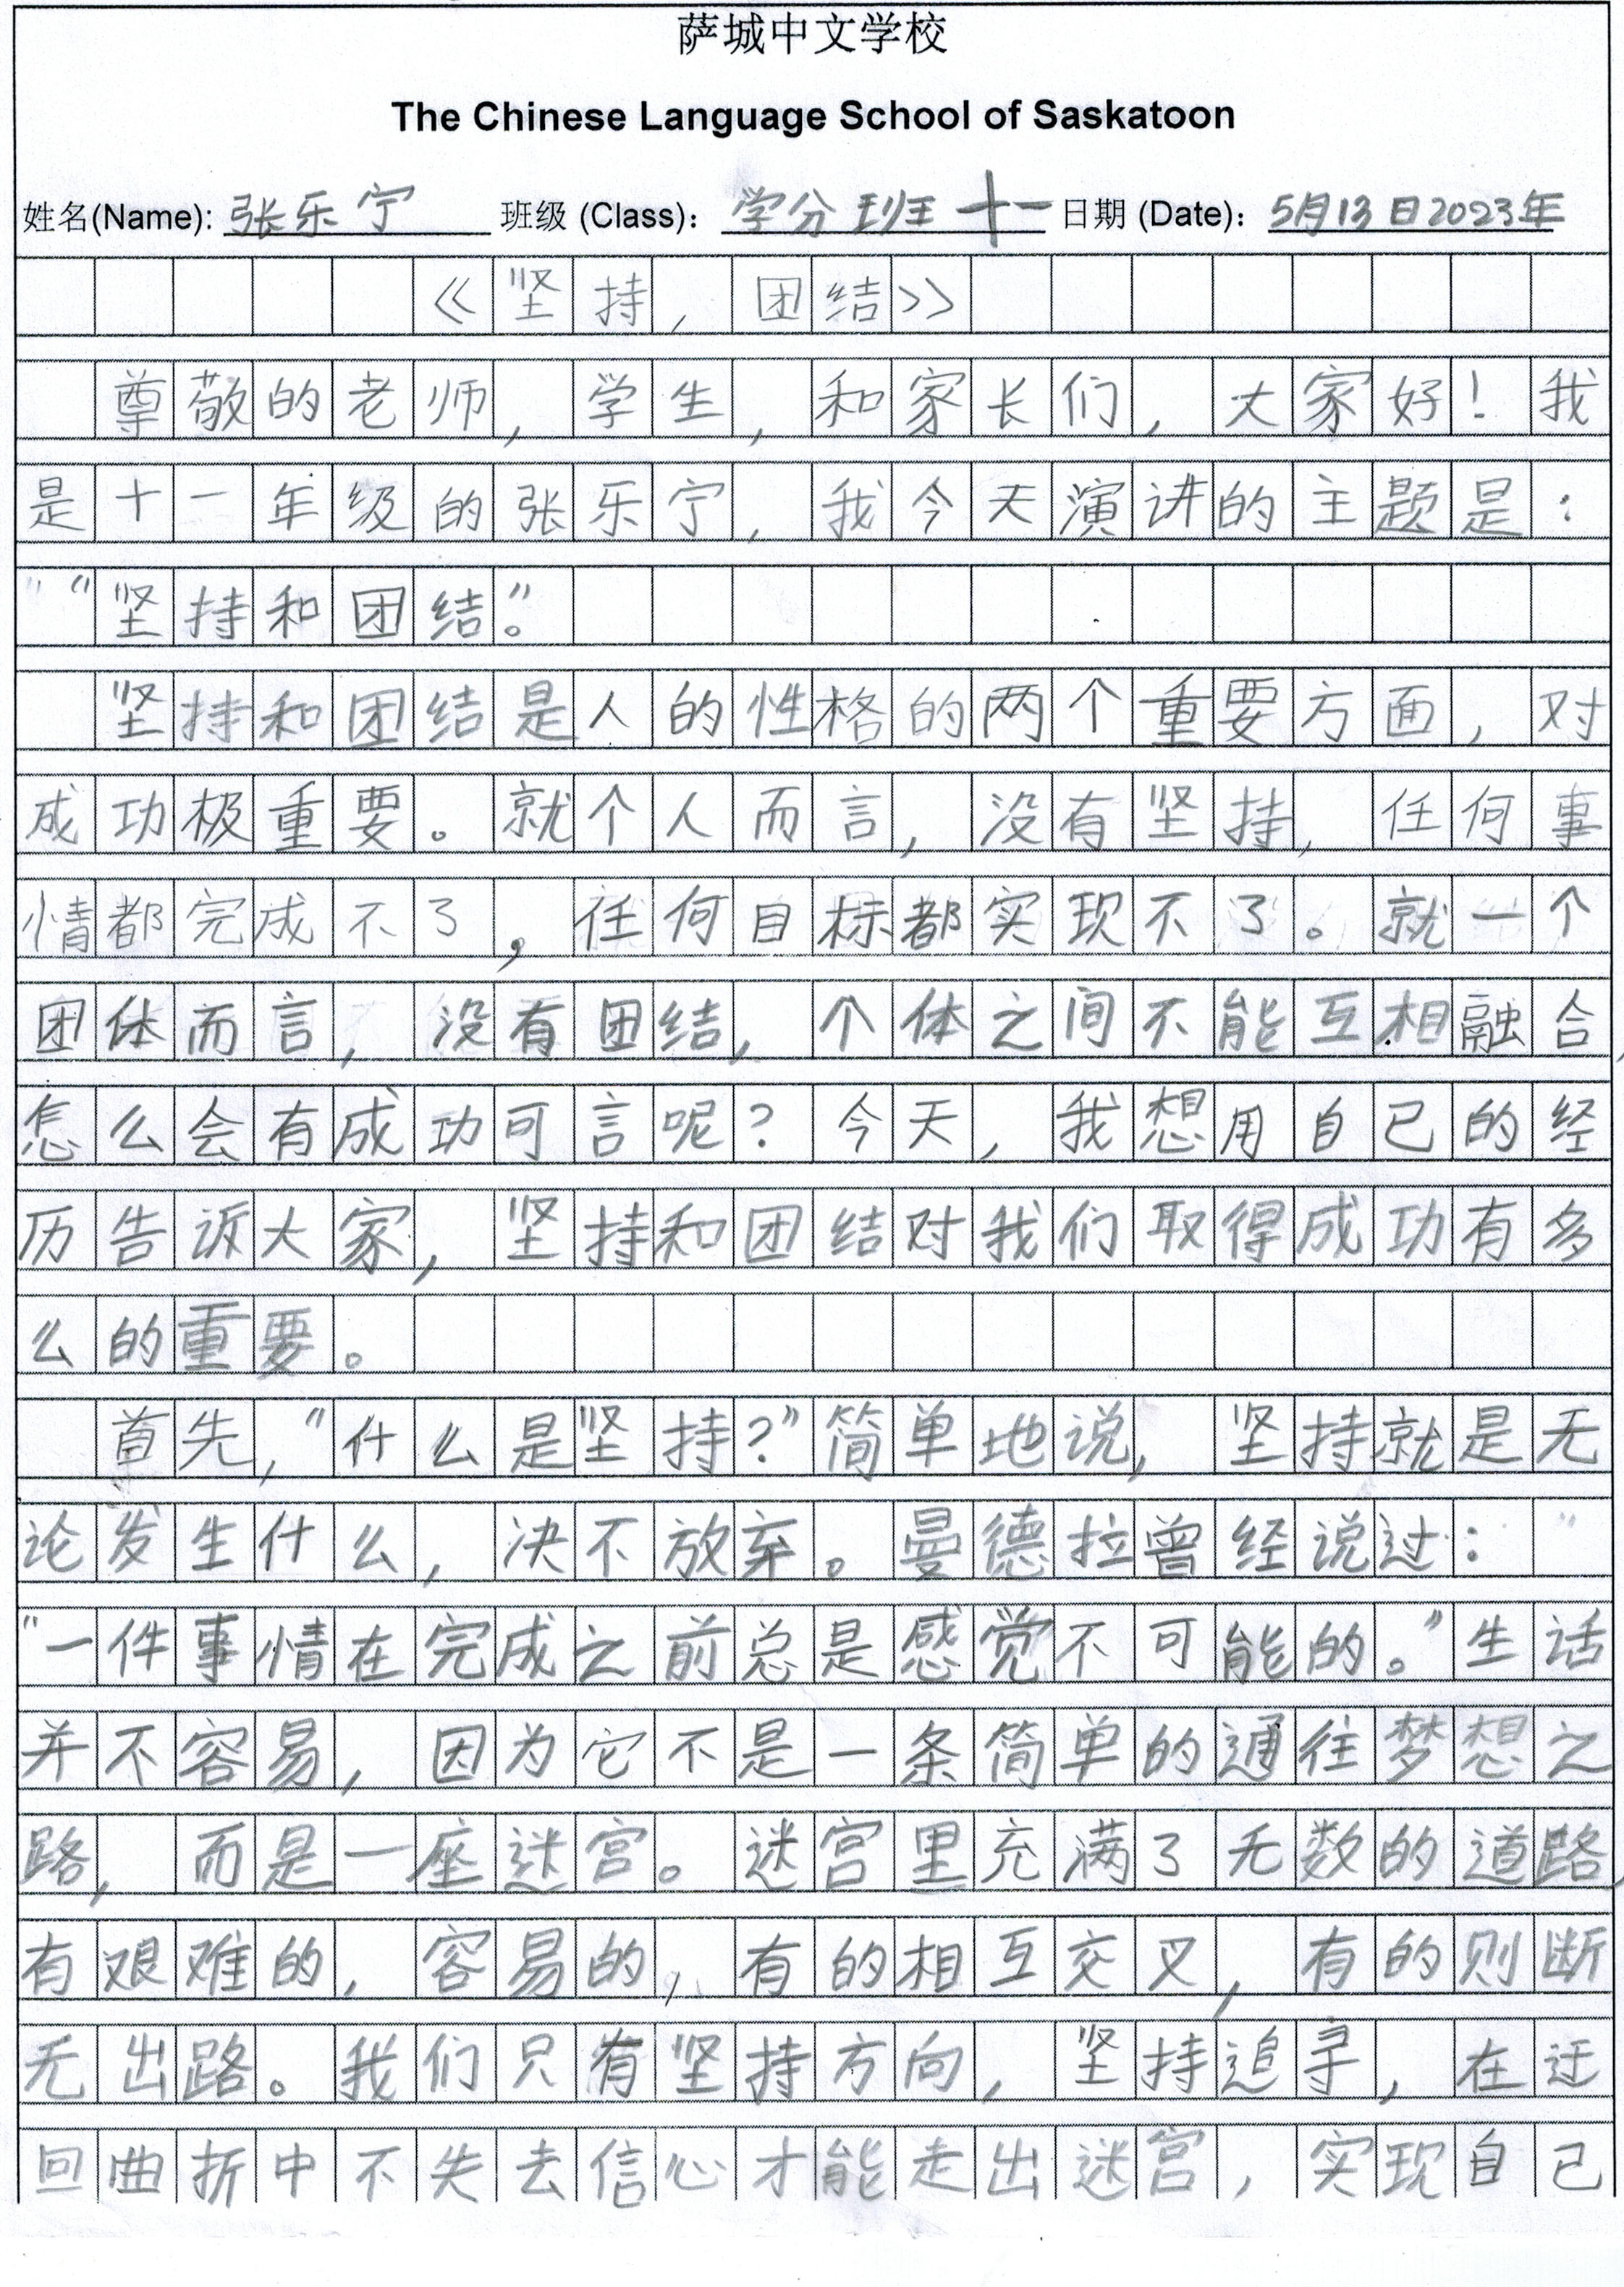 萨城中文学校
The Chinese Language School of Saskatoon
姓名(Name): 张乐宁 班级 (Class): 学分班十一 日期 (Date): 5月13日2023年
《坚持，团结》
尊敬的老师，学生，和家长们，大家好！我
是十一年级的张乐宁，我今天演讲的主题是：
“坚持和团结”。
坚持和团结是人的性格的两个重要方面，对
成功极重要。就个人而言，没有坚持，任何事
情都完成不了，任何目标都实现不了。就一个
团体而言，没有团结，个体之间不能互相融合，
怎么会有成功可言呢？今天，我想用自己的经
历告诉大家，坚持和团结对我们取得成功有多
么的重要。
首先，“什么是坚持？”简单地说，坚持就是无
论发生什么，决不放弃。曼德拉曾经说过：
“一件事情在完成之前总是感觉不可能的。”生话
并不容易，因为它不是一条简单的通往梦想之
路，而是一座迷宫。迷宫里充满了无数的道路，
有艰难的，容易的，有的相互交叉，有的则断
无出路。我们只有坚持方向，坚持追寻，在迂
回曲折中不失去信心才能走出迷宫，实现自己